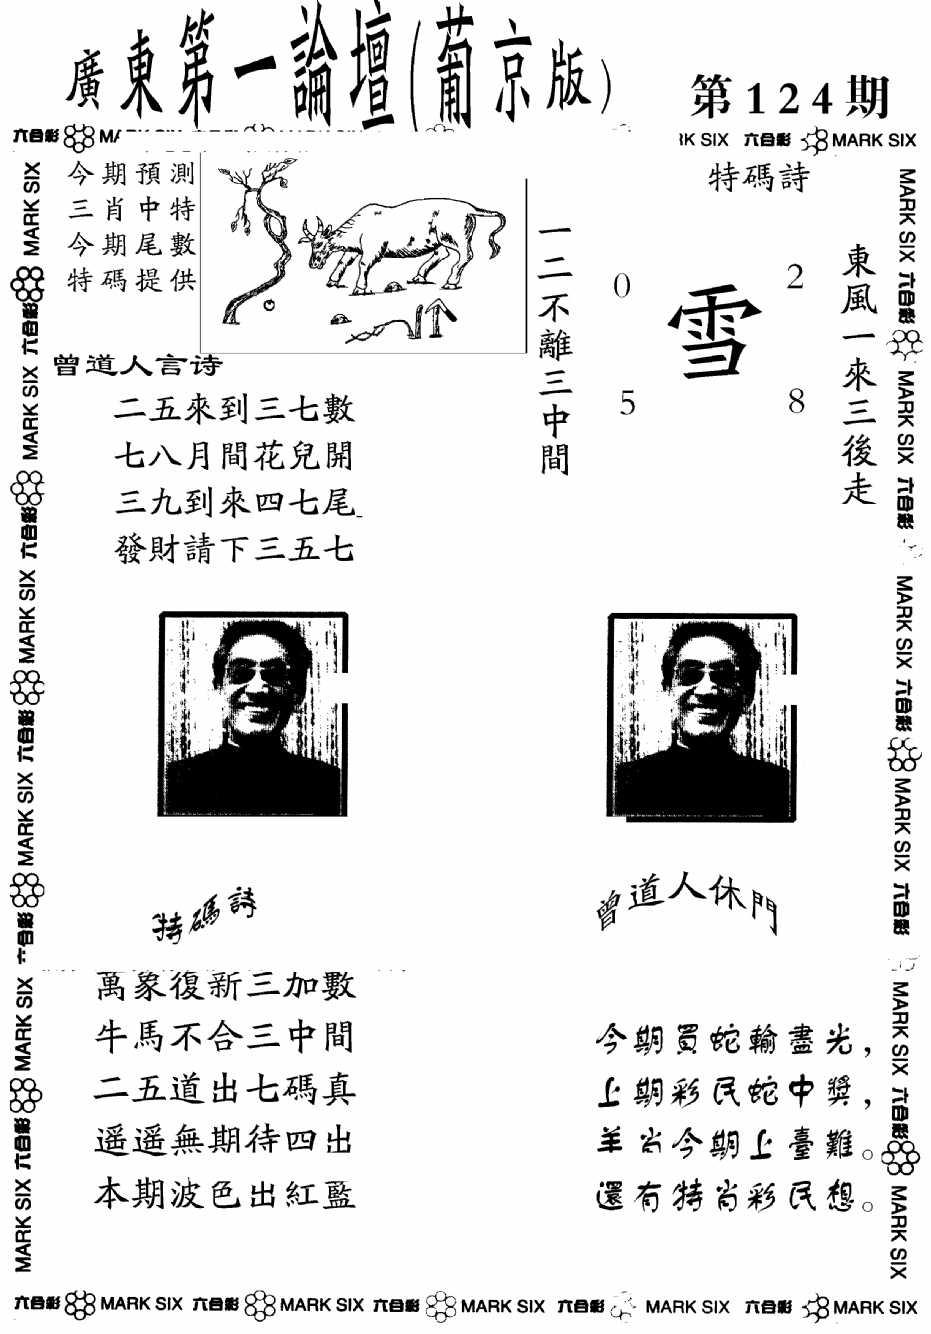 廣東第一論壇(葡京版)
第124期
六合彩 MARK SIX 六合彩 MARK SIX
今期預測
三肖中特
今期尾數
特碼提供
一二不離三中間
特碼詩
0 2
雪
5 8
東風一來三後走
曾道人言诗
二五來到三七數
七八月間花兒開
三九到來四七尾
發財請下三五七
特碼詩
萬象復新三加數
牛馬不合三中間
二五道出七碼真
遥遥無期待四出
本期波色出紅藍
曾道人休門
今期買蛇輸盡光,
上期彩民蛇中獎,
羊肖今期上臺難。
還有特肖彩民想。
MARK SIX 六合彩 MARK SIX 六合彩 MARK SIX 六合彩 MARK SIX 六合彩 MARK SIX 六合彩 MARK SIX
MARK SIX 六合彩 MARK SIX 六合彩 MARK SIX 六合彩 MARK SIX 六合彩 MARK SIX 六合彩 MARK SIX
六合彩 MARK SIX 六合彩 MARK SIX 六合彩 MARK SIX 六合彩 MARK SIX 六合彩 MARK SIX